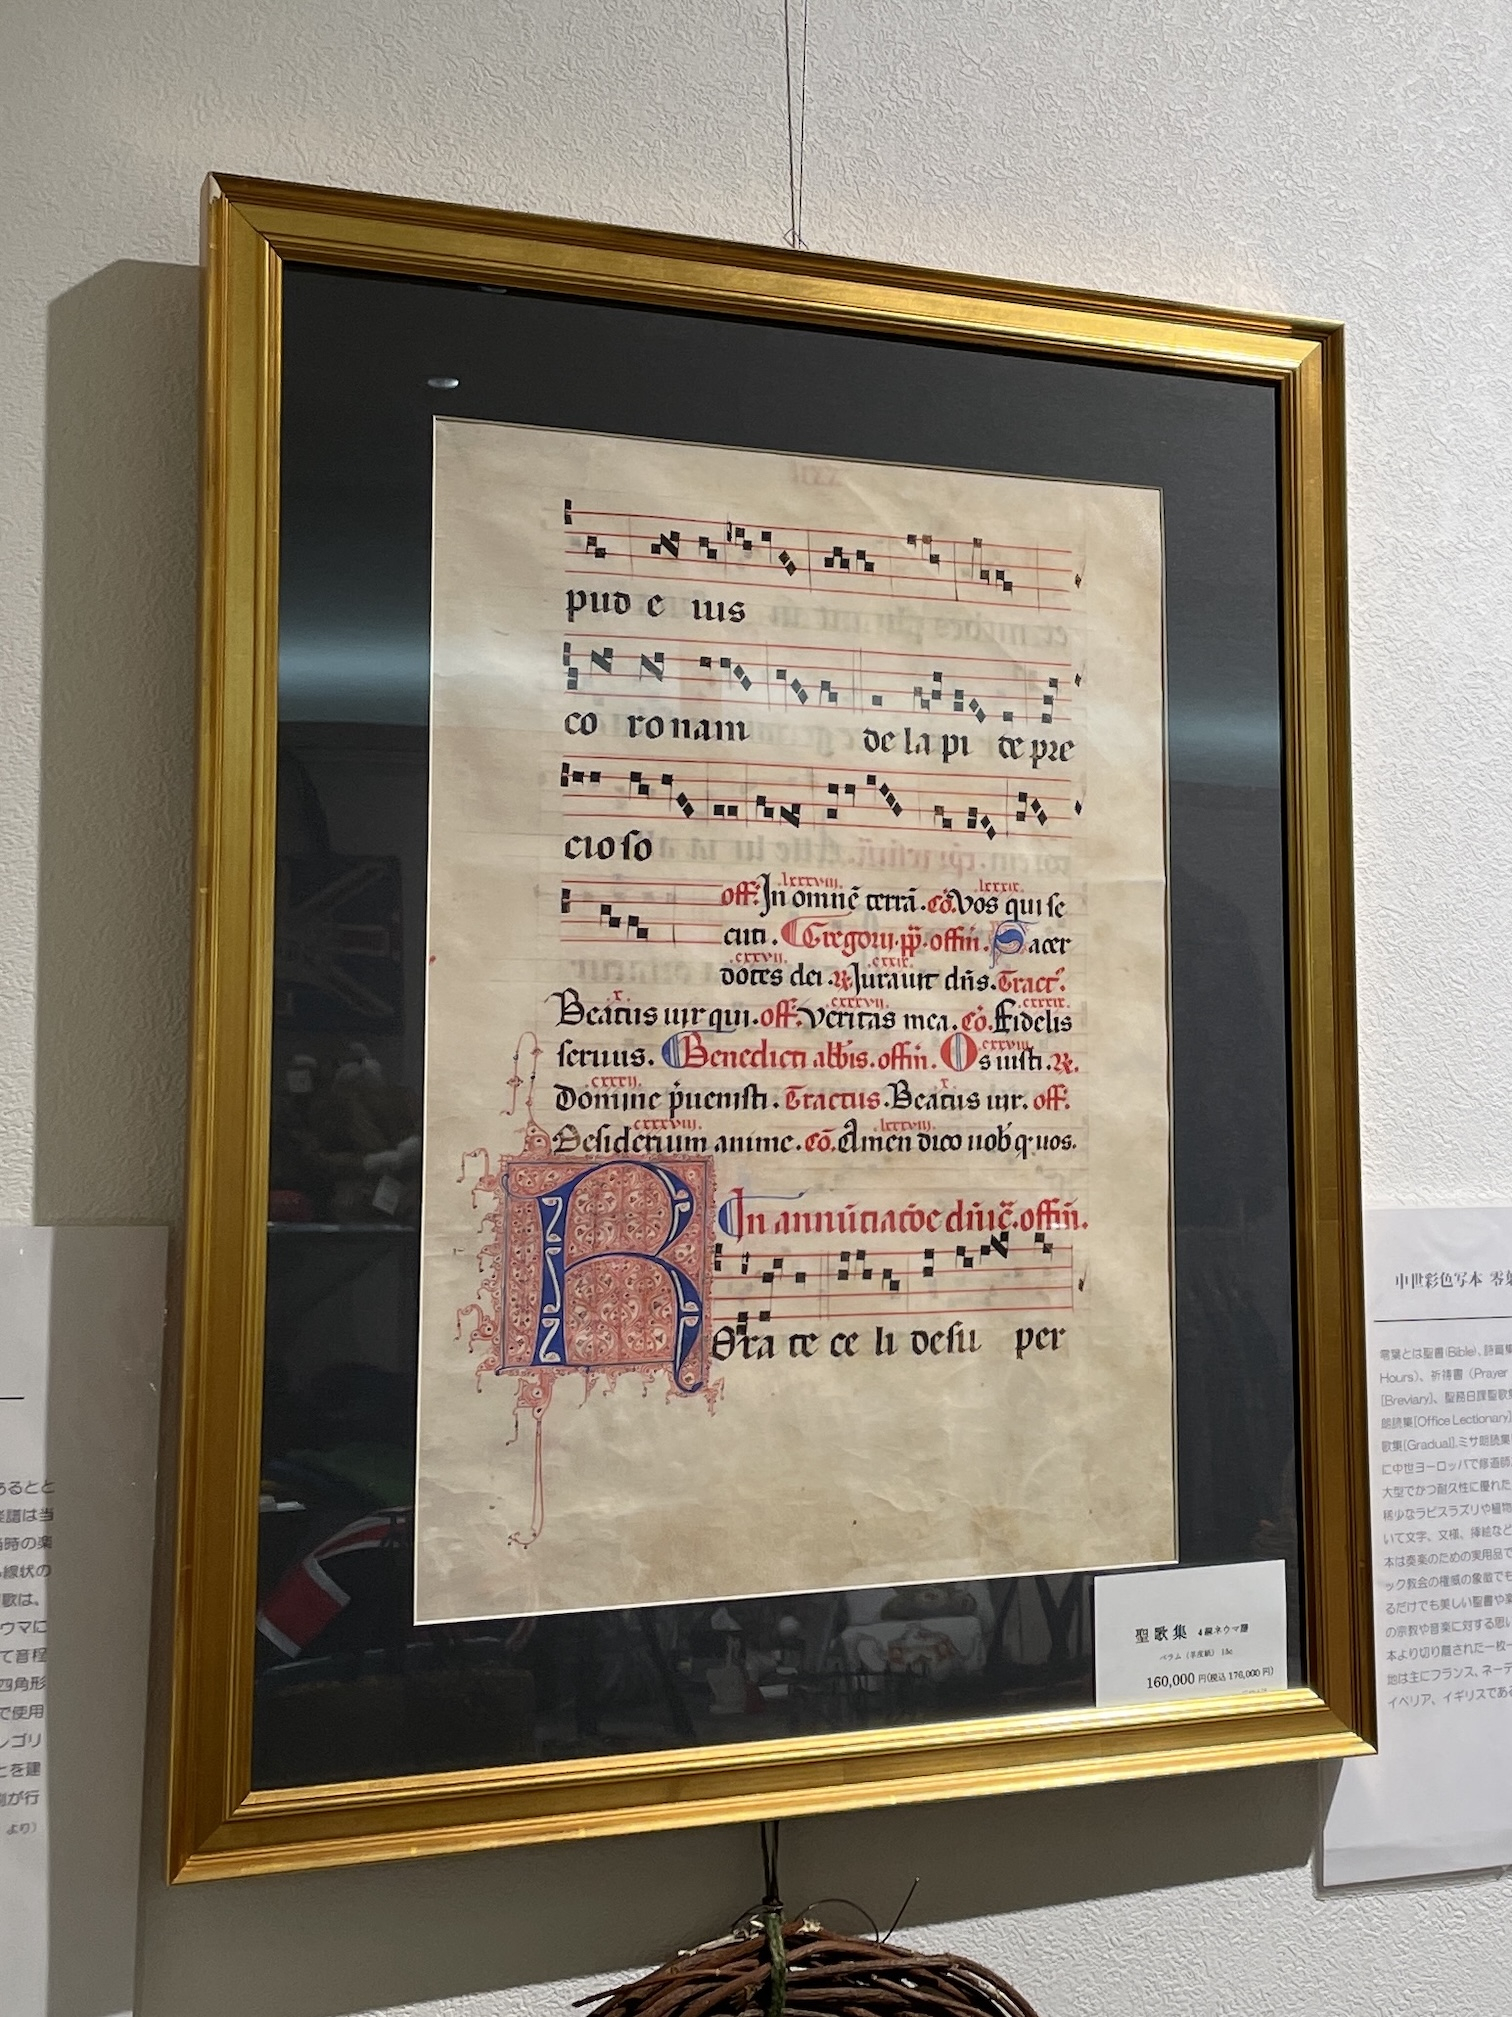 pud e ius
co ronam de la pi de pre
cio so
lxxxviii. lxxxix.
off. In omnē terrā. cō. Vos qui se
cuti. Gregorii. pp. offm. Sacer
cxxvii. cxxix.
dotes dei. ℟. Iurauit dn̄s. Tract.
x. cxxxvii. cxxxix.
Beatus uir qui. off. Veritas mea. cō. Fidelis
seruus. Benedicti abbīs. offm. Os iusti. ℟.
cxxviii.
cxxxii. x.
Domine p̄uenisti. Tractus. Beatus uir. off.
cxxxviii. lxxxviii.
Desiderium anime. cō. Amen dico uob q uos.
In annūtiatōe dn̄ice. offm.
R
Orate celi desu per
聖歌集 4線ネウマ譜
ベラム(羊皮紙) 15c
160,000円(税込176,000円)
あるとと
楽譜は当
当時の楽
線状の
歌は、
ウマに
て音程
四角形
で使用
レゴリ
とを建
割が行
より)
中世彩色写本 零葉
零葉とは聖書(Bible)、詩篇集
Hours)、祈祷書 (Prayer
[Breviary]、聖務日課聖歌集
朗読集[Office Lectionary]
歌集[Gradual]、ミサ朗読集
に中世ヨーロッパで修道師
大型でかつ耐久性に優れた
稀少なラピスラズリや植物
いて文字、文様、挿絵など
本は奏楽のための実用品で
ック教会の権威の象徴でも
るだけでも美しい聖書や楽
の宗教や音楽に対する思い
本より切り離された一枚一
地は主にフランス、ネーデ
イベリア、イギリスである